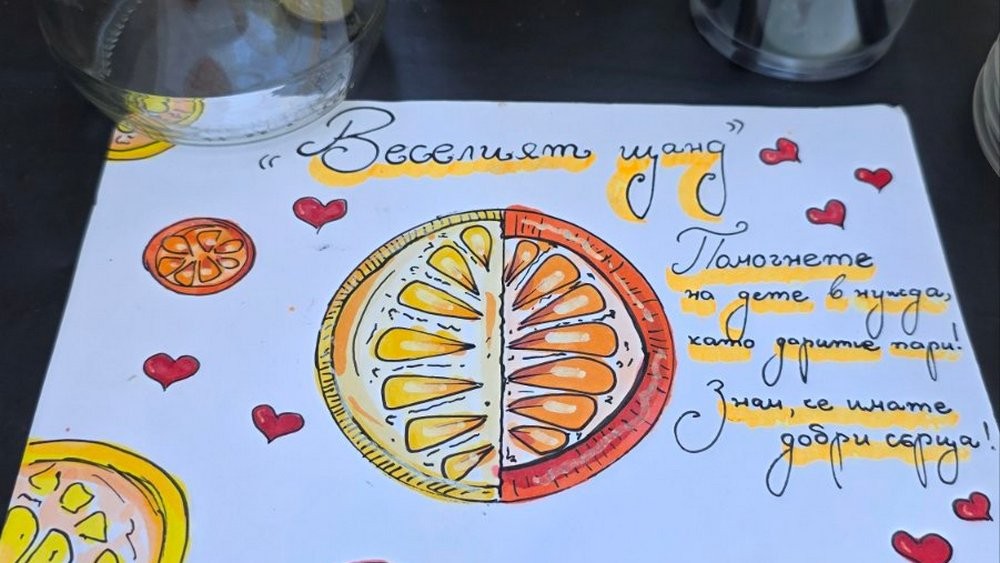 „Веселият щанд”
Помогнете
на дете в нужда,
като дарите пари!
Знам, че имате
добри сърца!